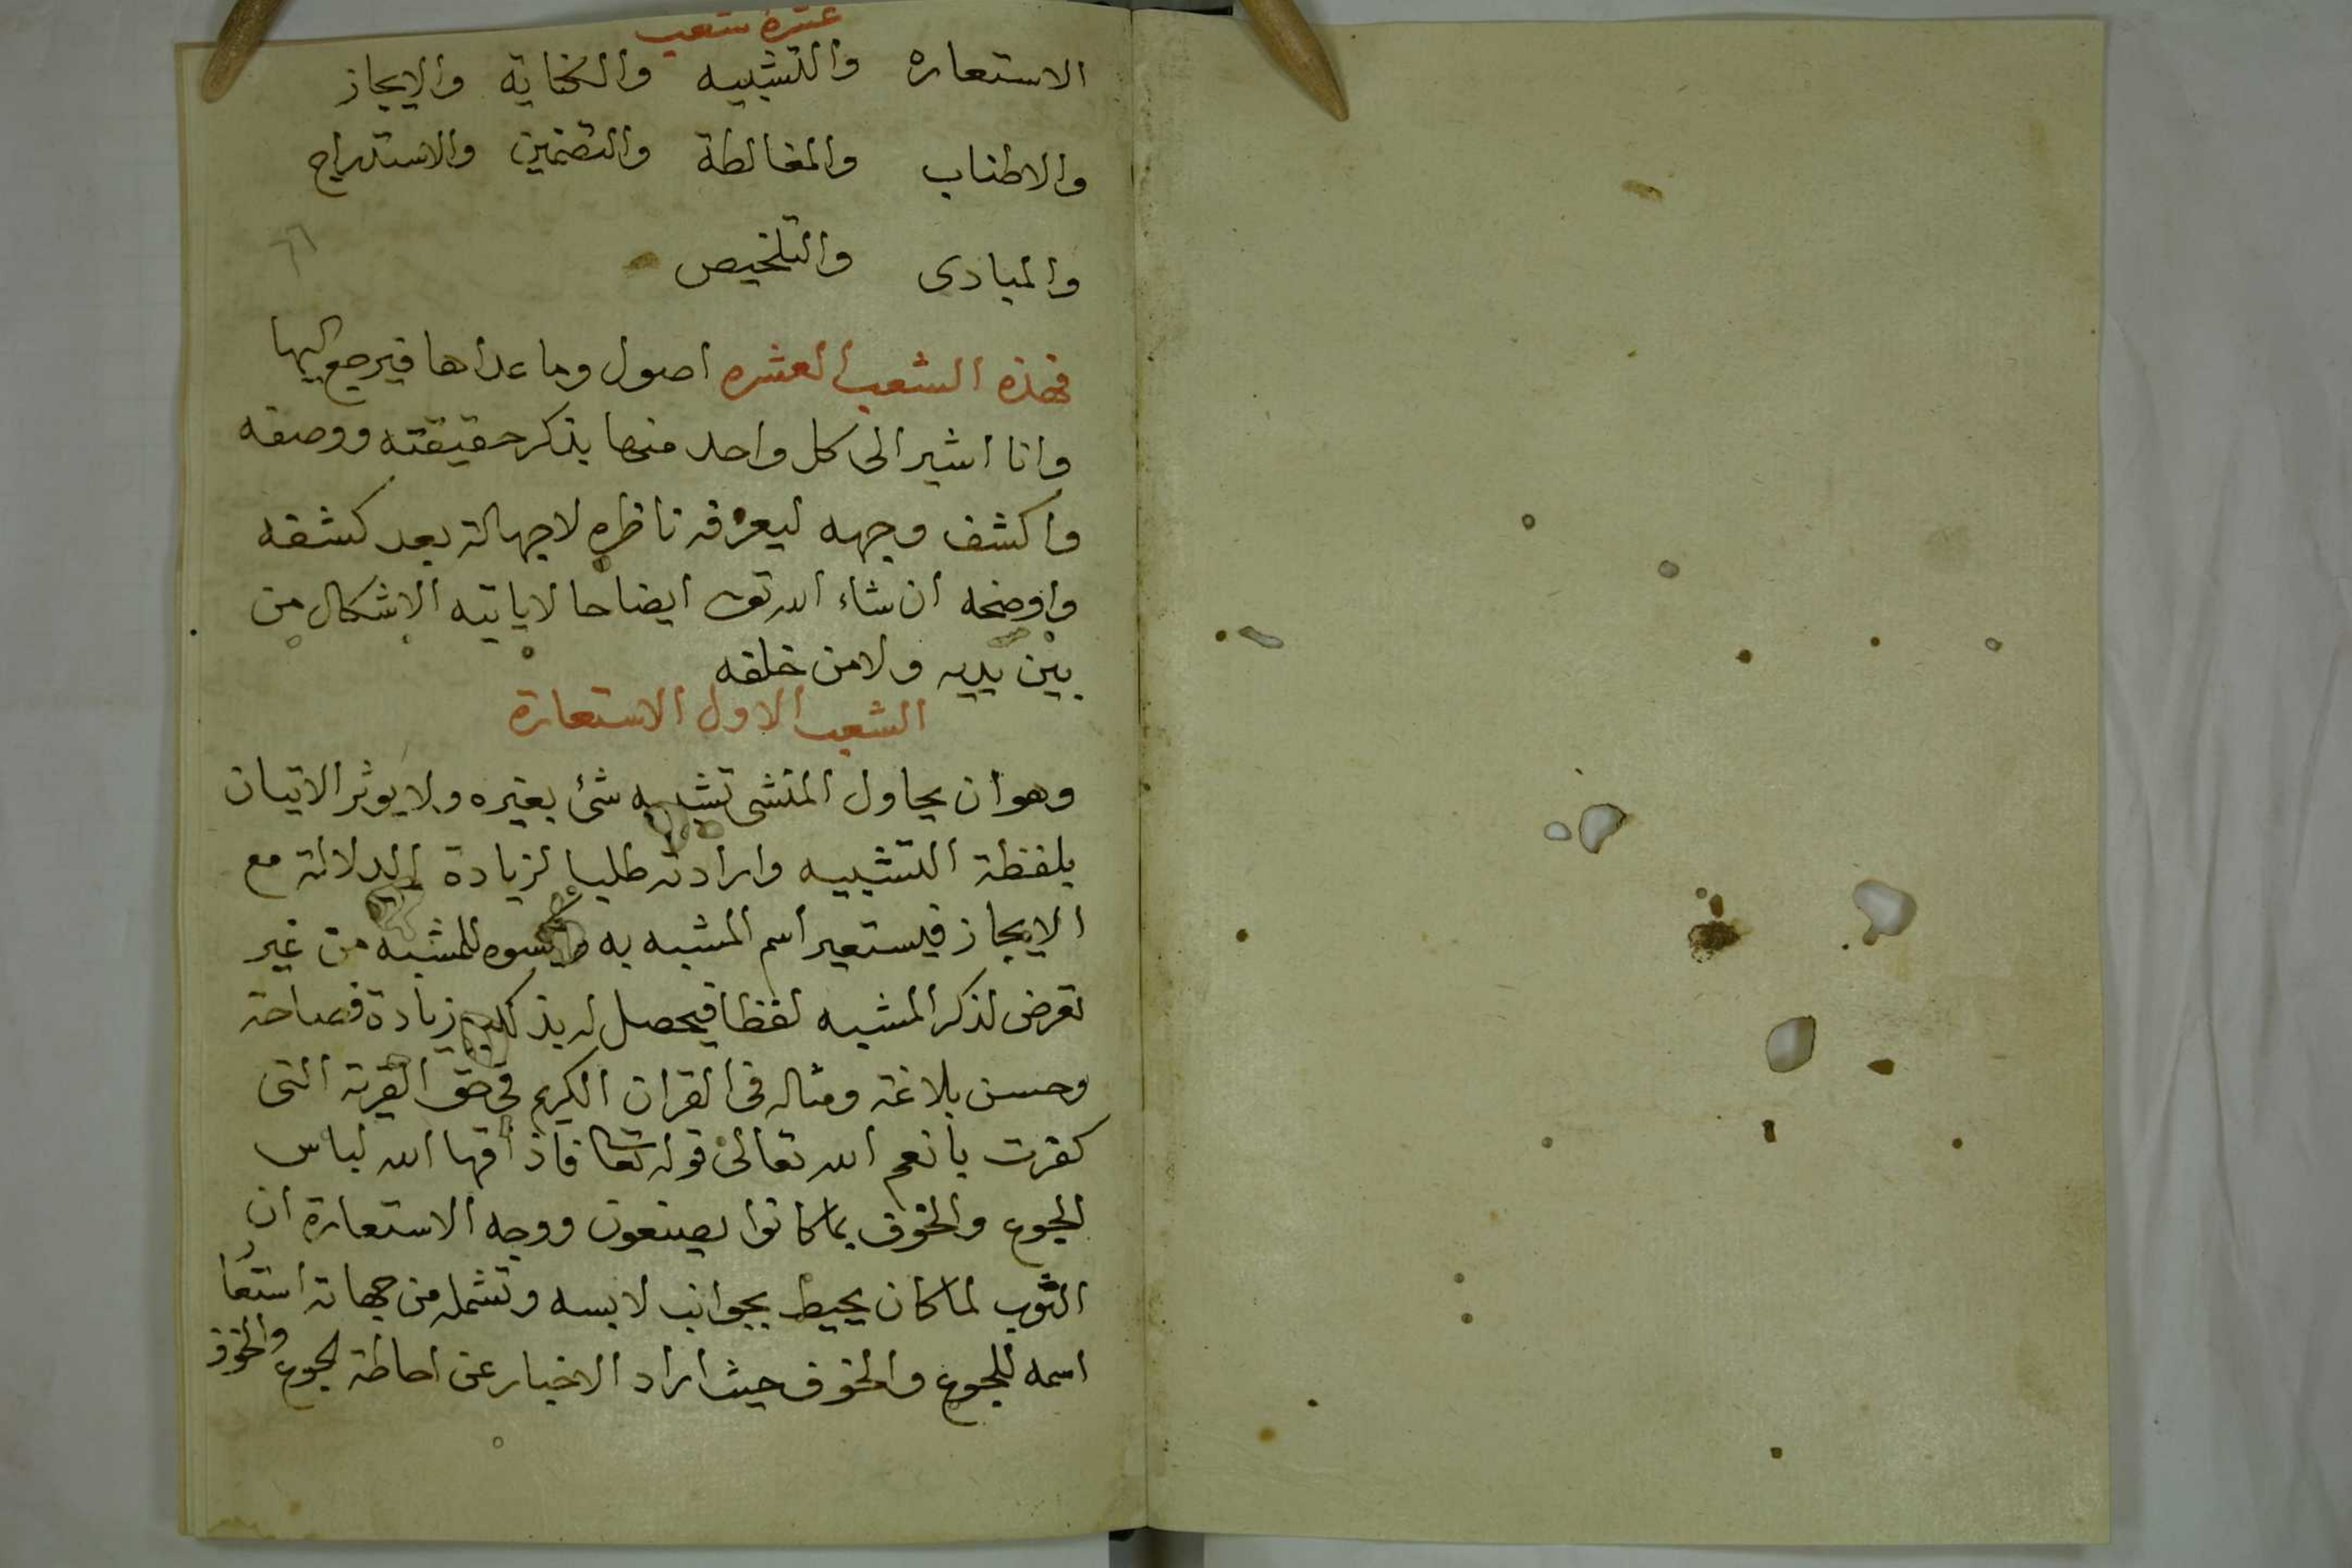 عشرة شعب
الاستعاره والتشبيه والكناية والايجاز
والاطناب والمغالطة والتضمين والاستدراج
والمبادى والتلخيص
فهذه الشعب العشره اصول وما عداها فيرجع اليها
وانا اشير الى كل واحد منها بذكر حقيقته ووصفه
واكشف وجهه ليعرفه ناظره لا جهالة بعد كشفه
واوضحه ان شاء الله تعالى ايضاحا لا ياتيه الاشكال من
بين يديه ولا من خلفه
الشعب الاول الاستعارة
وهو ان يحاول المنشى تشبيه شئ بغيره ولا يوثر الاتيان
بلفظة التشبيه وارادته طلبا لزيادة الدلالة مع
الايجاز فيستعير اسم المشبه به للمشبه من غير
تعرض لذكر المشبه لفظا فيحصل له بذلك زيادة فصاحة
وحسن بلاغة ومثاله فى القران الكريم فى حق القرية التى
كفرت بانعم الله تعالى قوله تعا فاذاقها الله لباس
الجوع والخوف بما كانوا يصنعون ووجه الاستعارة ان
الثوب لما كان يحيط بجوانب لابسه وتشمله من جهاته استعار
اسمه للجوع والخوف حيث اراد الاخبار عن احاطة الجوع والخوف